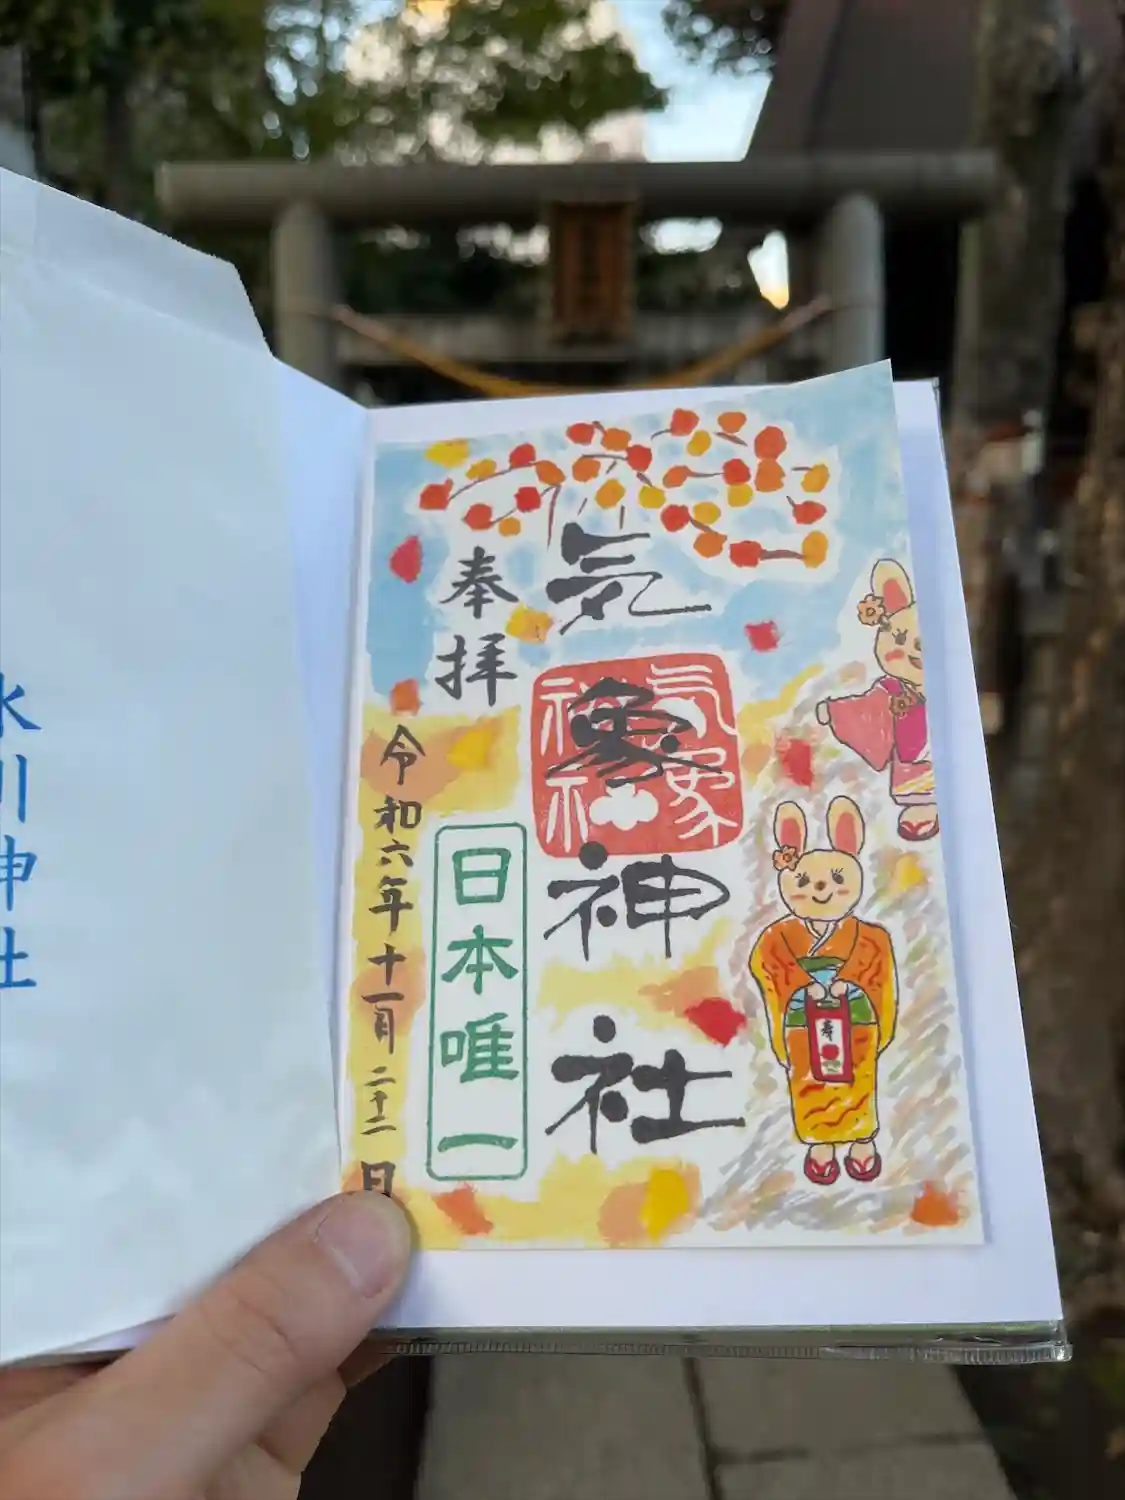 気象神社
奉拝
日本唯一
令和六年十一月二十二日
気象神社
寿
氷川神社